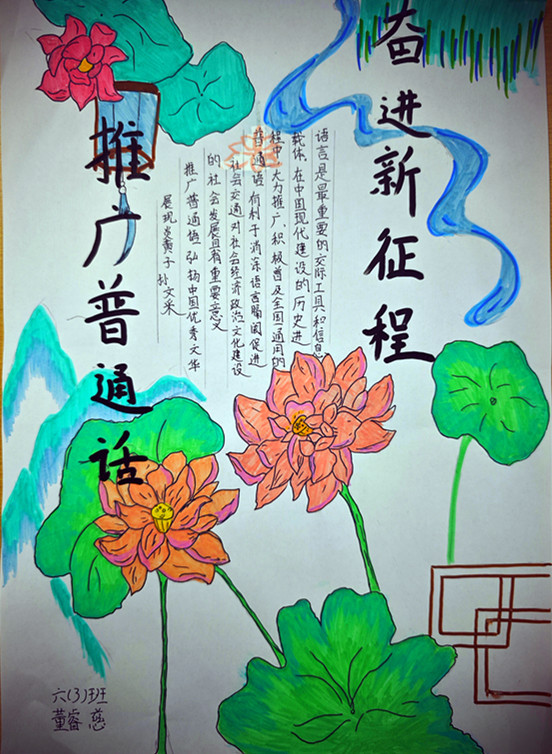 奋进新征程
推广普通话
语言是最重要的交际工具和信息
载体,在中国现代建设的历史进
程中,大力推广、积极普及全国通用的
普通话,有利于消除语言隔阂,促进
社会交通,对社会经济政治文化建设
的社会发展具有重要意义
推广普通话,弘扬中国优秀文华
展现炎黄子孙文采
六(3)班
董睿慈